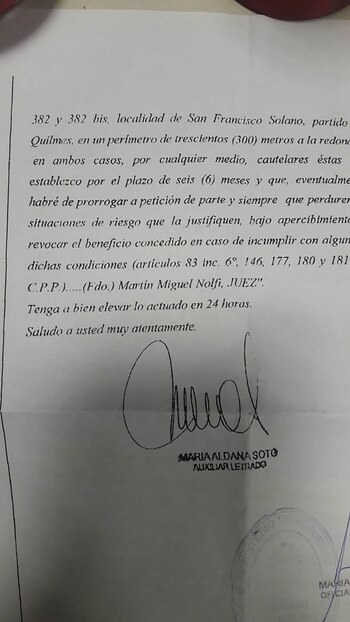 382 y 382 bis, localidad de San Francisco Solano, partido
Quilmes, en un perímetro de trescientos (300) metros a la redon
en ambos casos, por cualquier medio, cautelares éstas
establezco por el plazo de seis (6) meses y que, eventualme
habré de prorrogar a petición de parte y siempre que perduren
situaciones de riesgo que la justifiquen, bajo apercibimiento
revocar el beneficio concedido en caso de incumplir con algun
dichas condiciones (artículos 83 inc. 6º, 146, 177, 180 y 181
C.P.P.).....(Fdo.) Martín Miguel Nolfi, JUEZ".
Tenga a bien elevar lo actuado en 24 horas.
Saludo a usted muy atentamente.
MARIA ALDANA SOTO
AUXILIAR LETRADO
MARIA
OFICIA